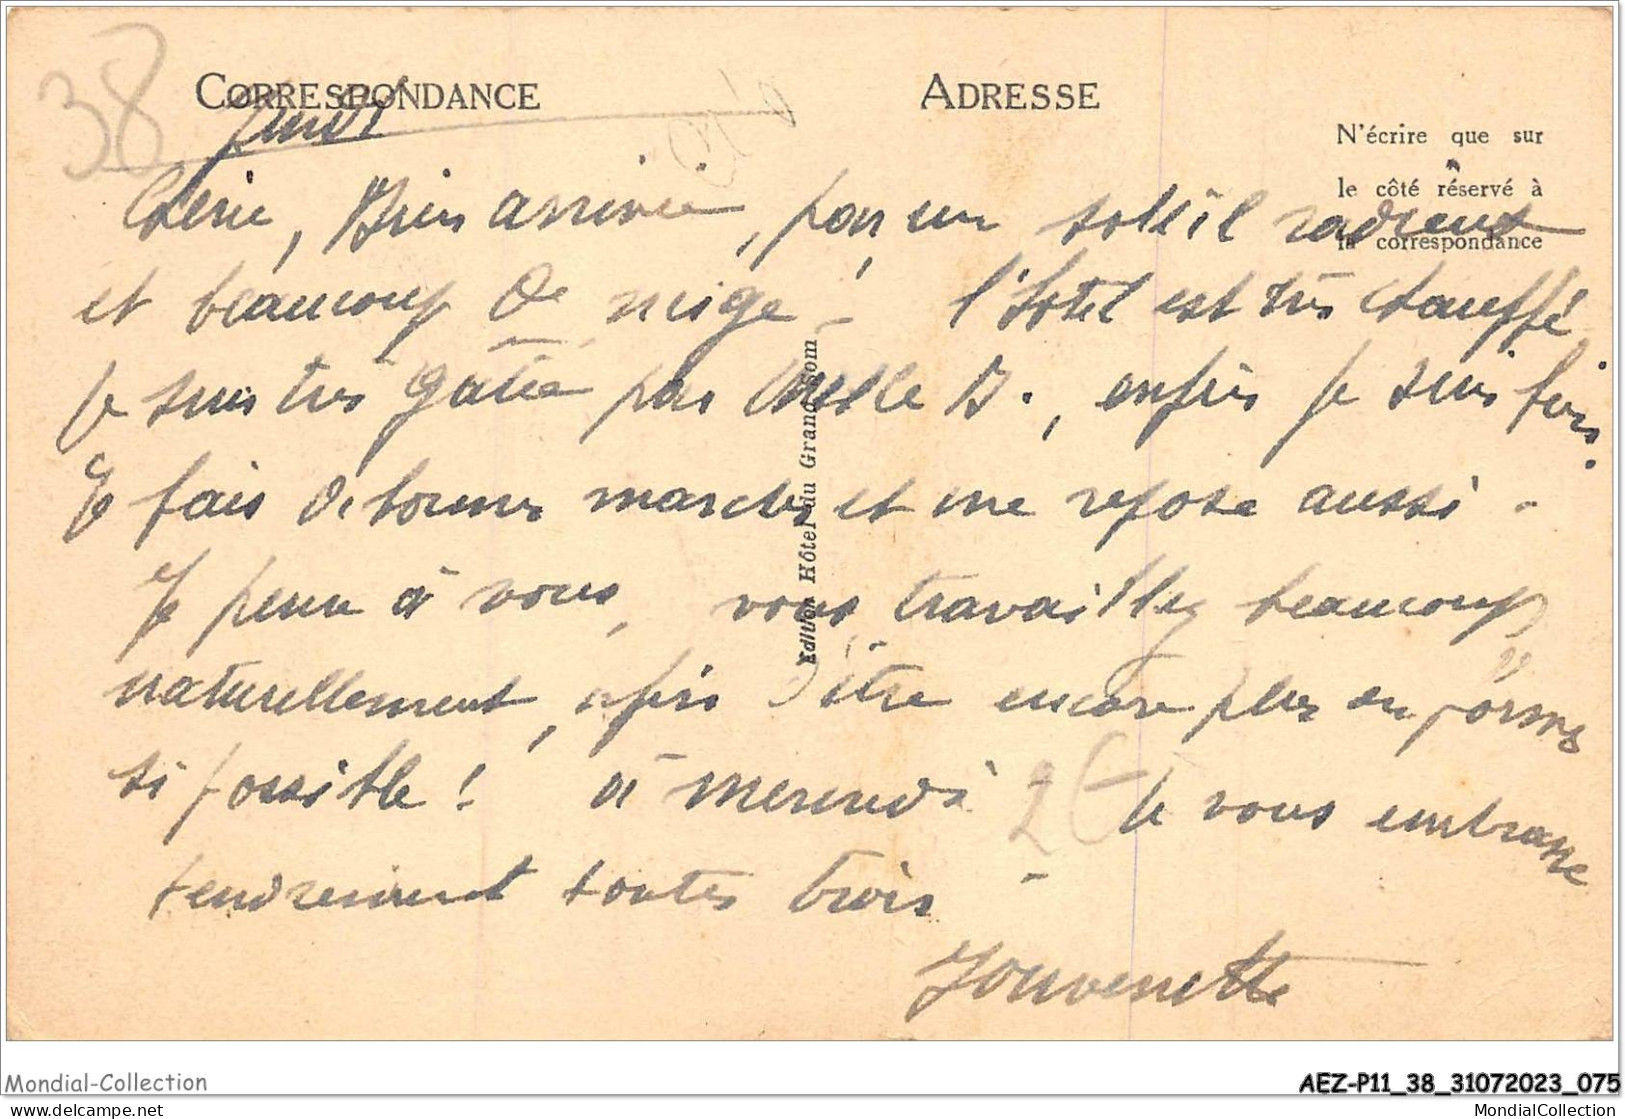 38
CORRESPONDANCE
ADRESSE
N'écrire que sur
le côté réservé à
la correspondance
Lundi
Chérie, Bien arrivée, par un soleil radieux
et beaucoup de neige - l'hôtel est très chauffé
je suis très gâtée par Melle B., enfin je suis bien.
Je fais de bonnes marches et me repose aussi -
Je pense à vous, vous travaillez beaucoup
naturellement, afin d'être encore plus en forme
si possible ! à mercredi - Je vous embrasse
tendrement toutes trois
Jouvenette
2€
Edition Hôtel du Grand Som
Mondial-Collection
AEZ-P11_38_31072023_075
Mondial-Collection.delcampe.net
MondialCollection